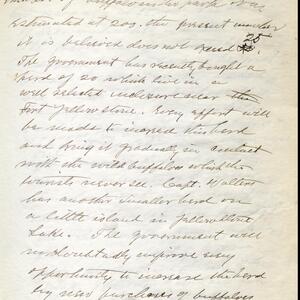 number of buffaloes in the park was
estimated at 200, the present number
it is believed does not exceed 25
The government has recently bought a
herd of 20 which live in a
well selected inclosure near the
Fort Yellowstone. Every effort will
be made to increase this herd
and bring it gradually in contact
with the wild buffaloes which the
tourists never see. Capt. Waters
has another smaller herd on
a little island in Yellowstone
Lake. The government will
undoubtedly improve every
opportunity to increase the herd
by new purchases of buffaloes